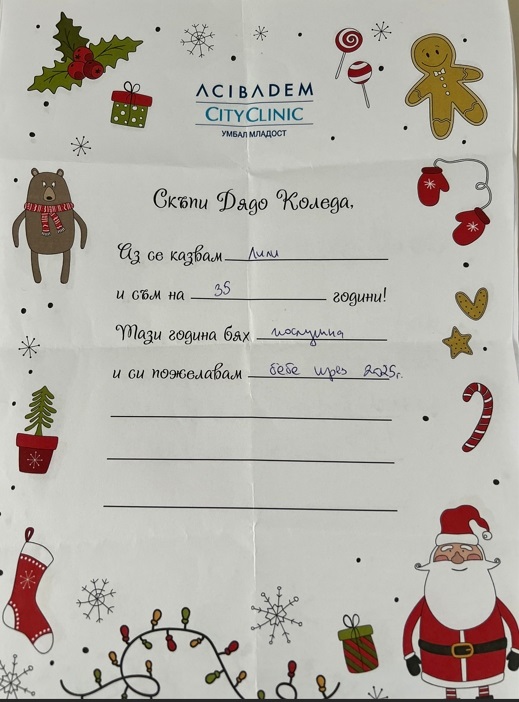 ACIBADEM
CITYCLINIC
УМБАЛ МЛАДОСТ
Скъпи Дядо Коледа,
Аз се казвам Лили
и съм на 35 години!
Тази година бях послушна
и си пожелавам бебе през 2025г.